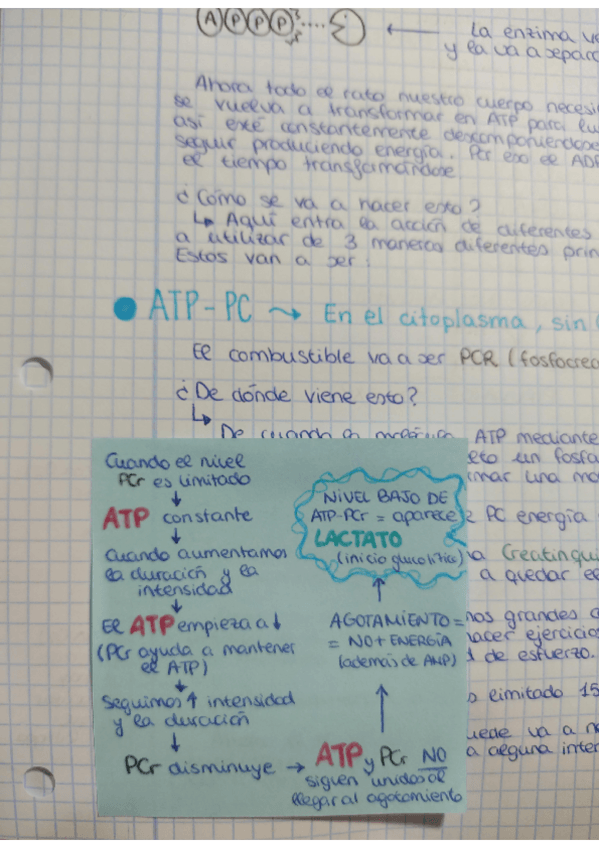 A P P P
La enzima va
y la va a separa
Ahora todo el rato nuestro cuerpo necesi
se vuelva a transformar en ATP para lu
así esté constantemente descomponiéndose
seguir produciendo energía. Por eso el AD
el tiempo transformándose
¿Cómo se va a hacer esto?
↳ Aquí entra la acción de diferentes
a utilizar de 3 maneras diferentes prin
Estas van a ser:
• ATP-PC → En el citoplasma, sin
El combustible va a ser PCR (fosfocrea
¿De dónde viene esto?
↳ De cuando la molécula ATP mediante
eto un fosfa
mar una mo
PC energía
a Creatinqui
a quedar
nos grandes
hacer ejercicios
de esfuerzo.
limitado 15
uede va a
a alguna inter
Cuando el nivel
PCr es limitado
↓
ATP constante
↓
Cuando aumentamos
la duración y la
intensidad
↓
El ATP empieza a ↓
(PCr ayuda a mantener
el ATP)
↓
Seguimos ↑ intensidad
y la duración
↓
PCr disminuye → ATP y PCr NO
siguen unidos al
llegar al agotamiento
↑
AGOTAMIENTO =
= NO + ENERGÍA
(además de AMP)
↑
NIVEL BAJO DE
ATP-PCr = aparece
LACTATO
(inicio glucolítica)